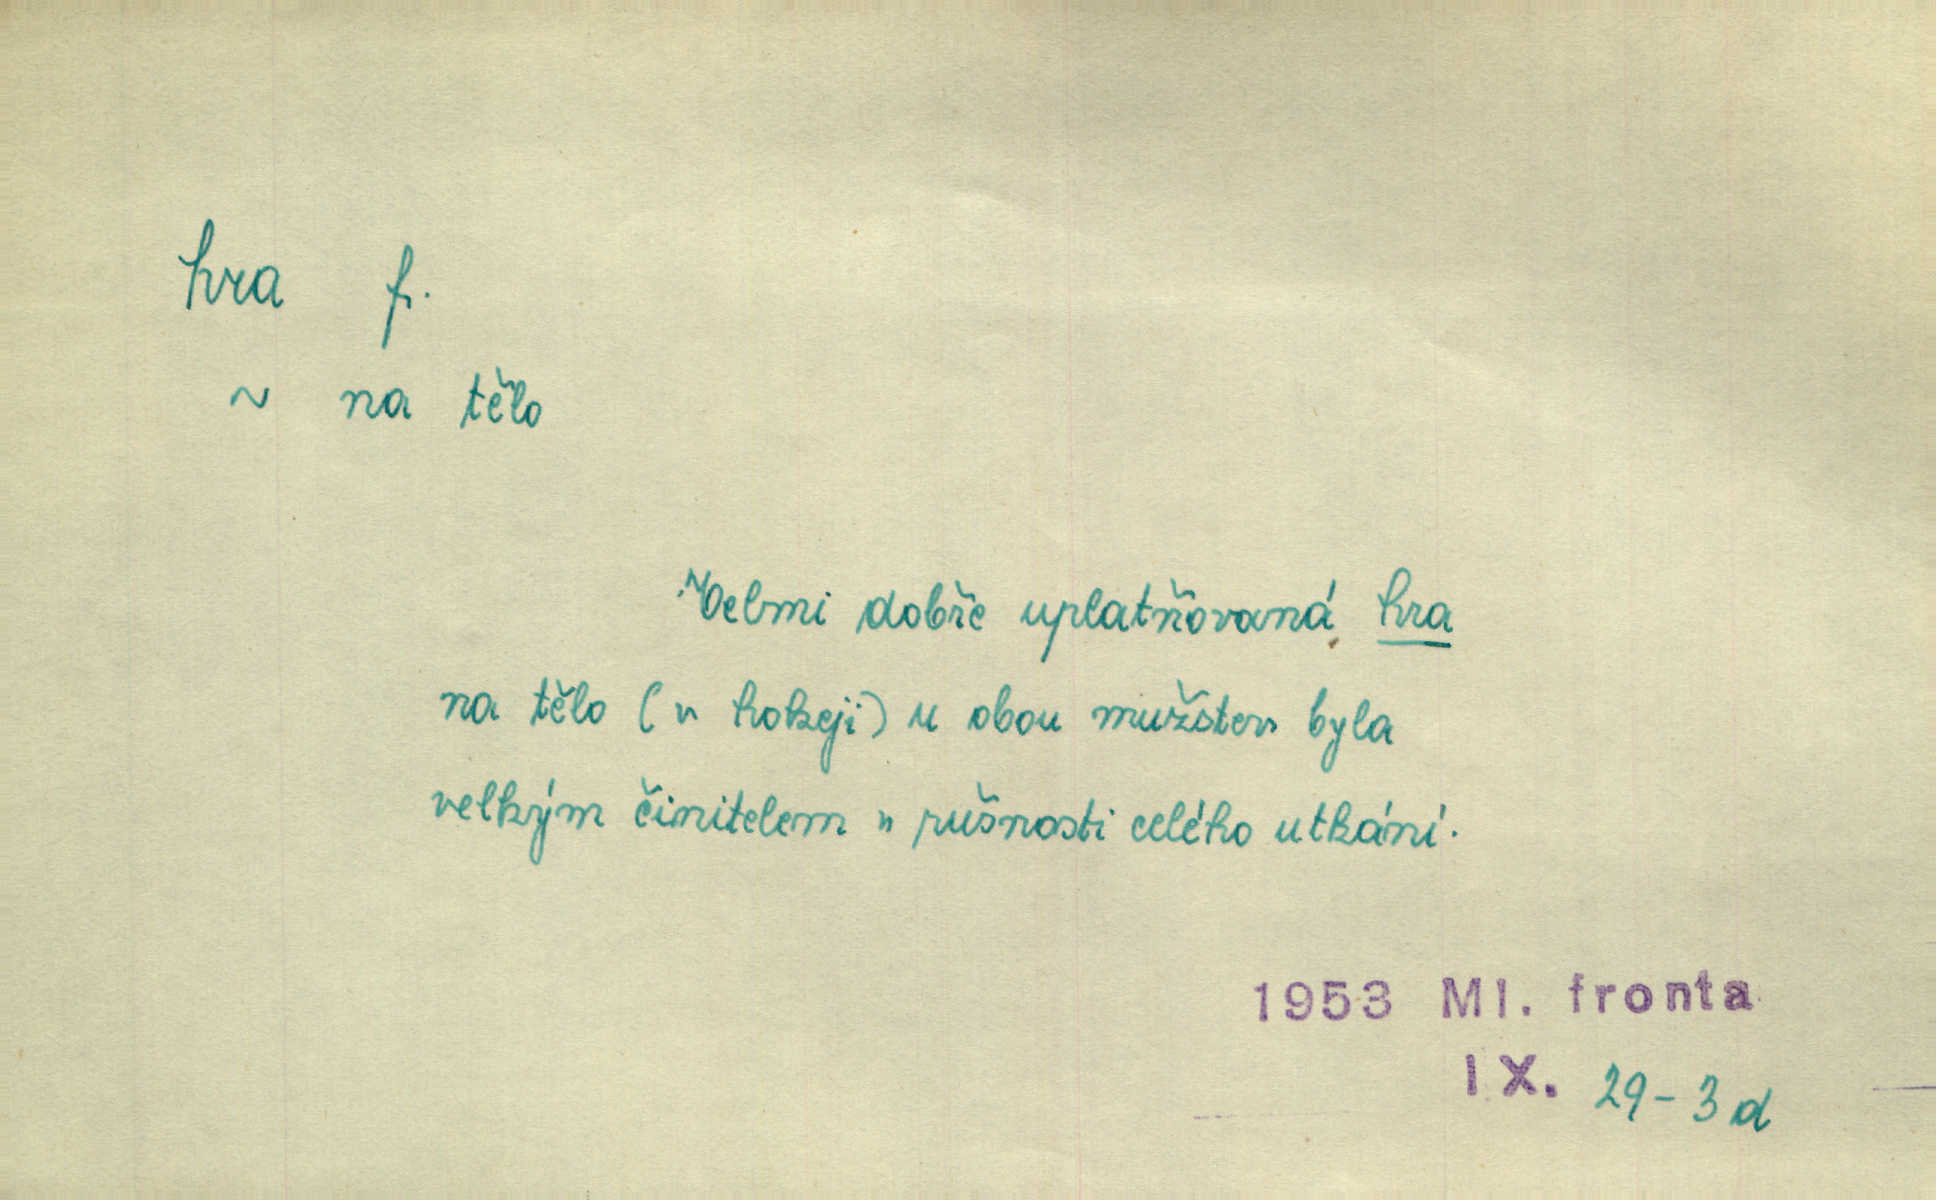 hra f.
~ na tělo
Velmi dobře uplatňovaná hra
na tělo (v hokeji) u obou mužstev byla
velkým činitelem v rušnosti celého utkání.
1953 Ml. fronta
IX. 29-3d